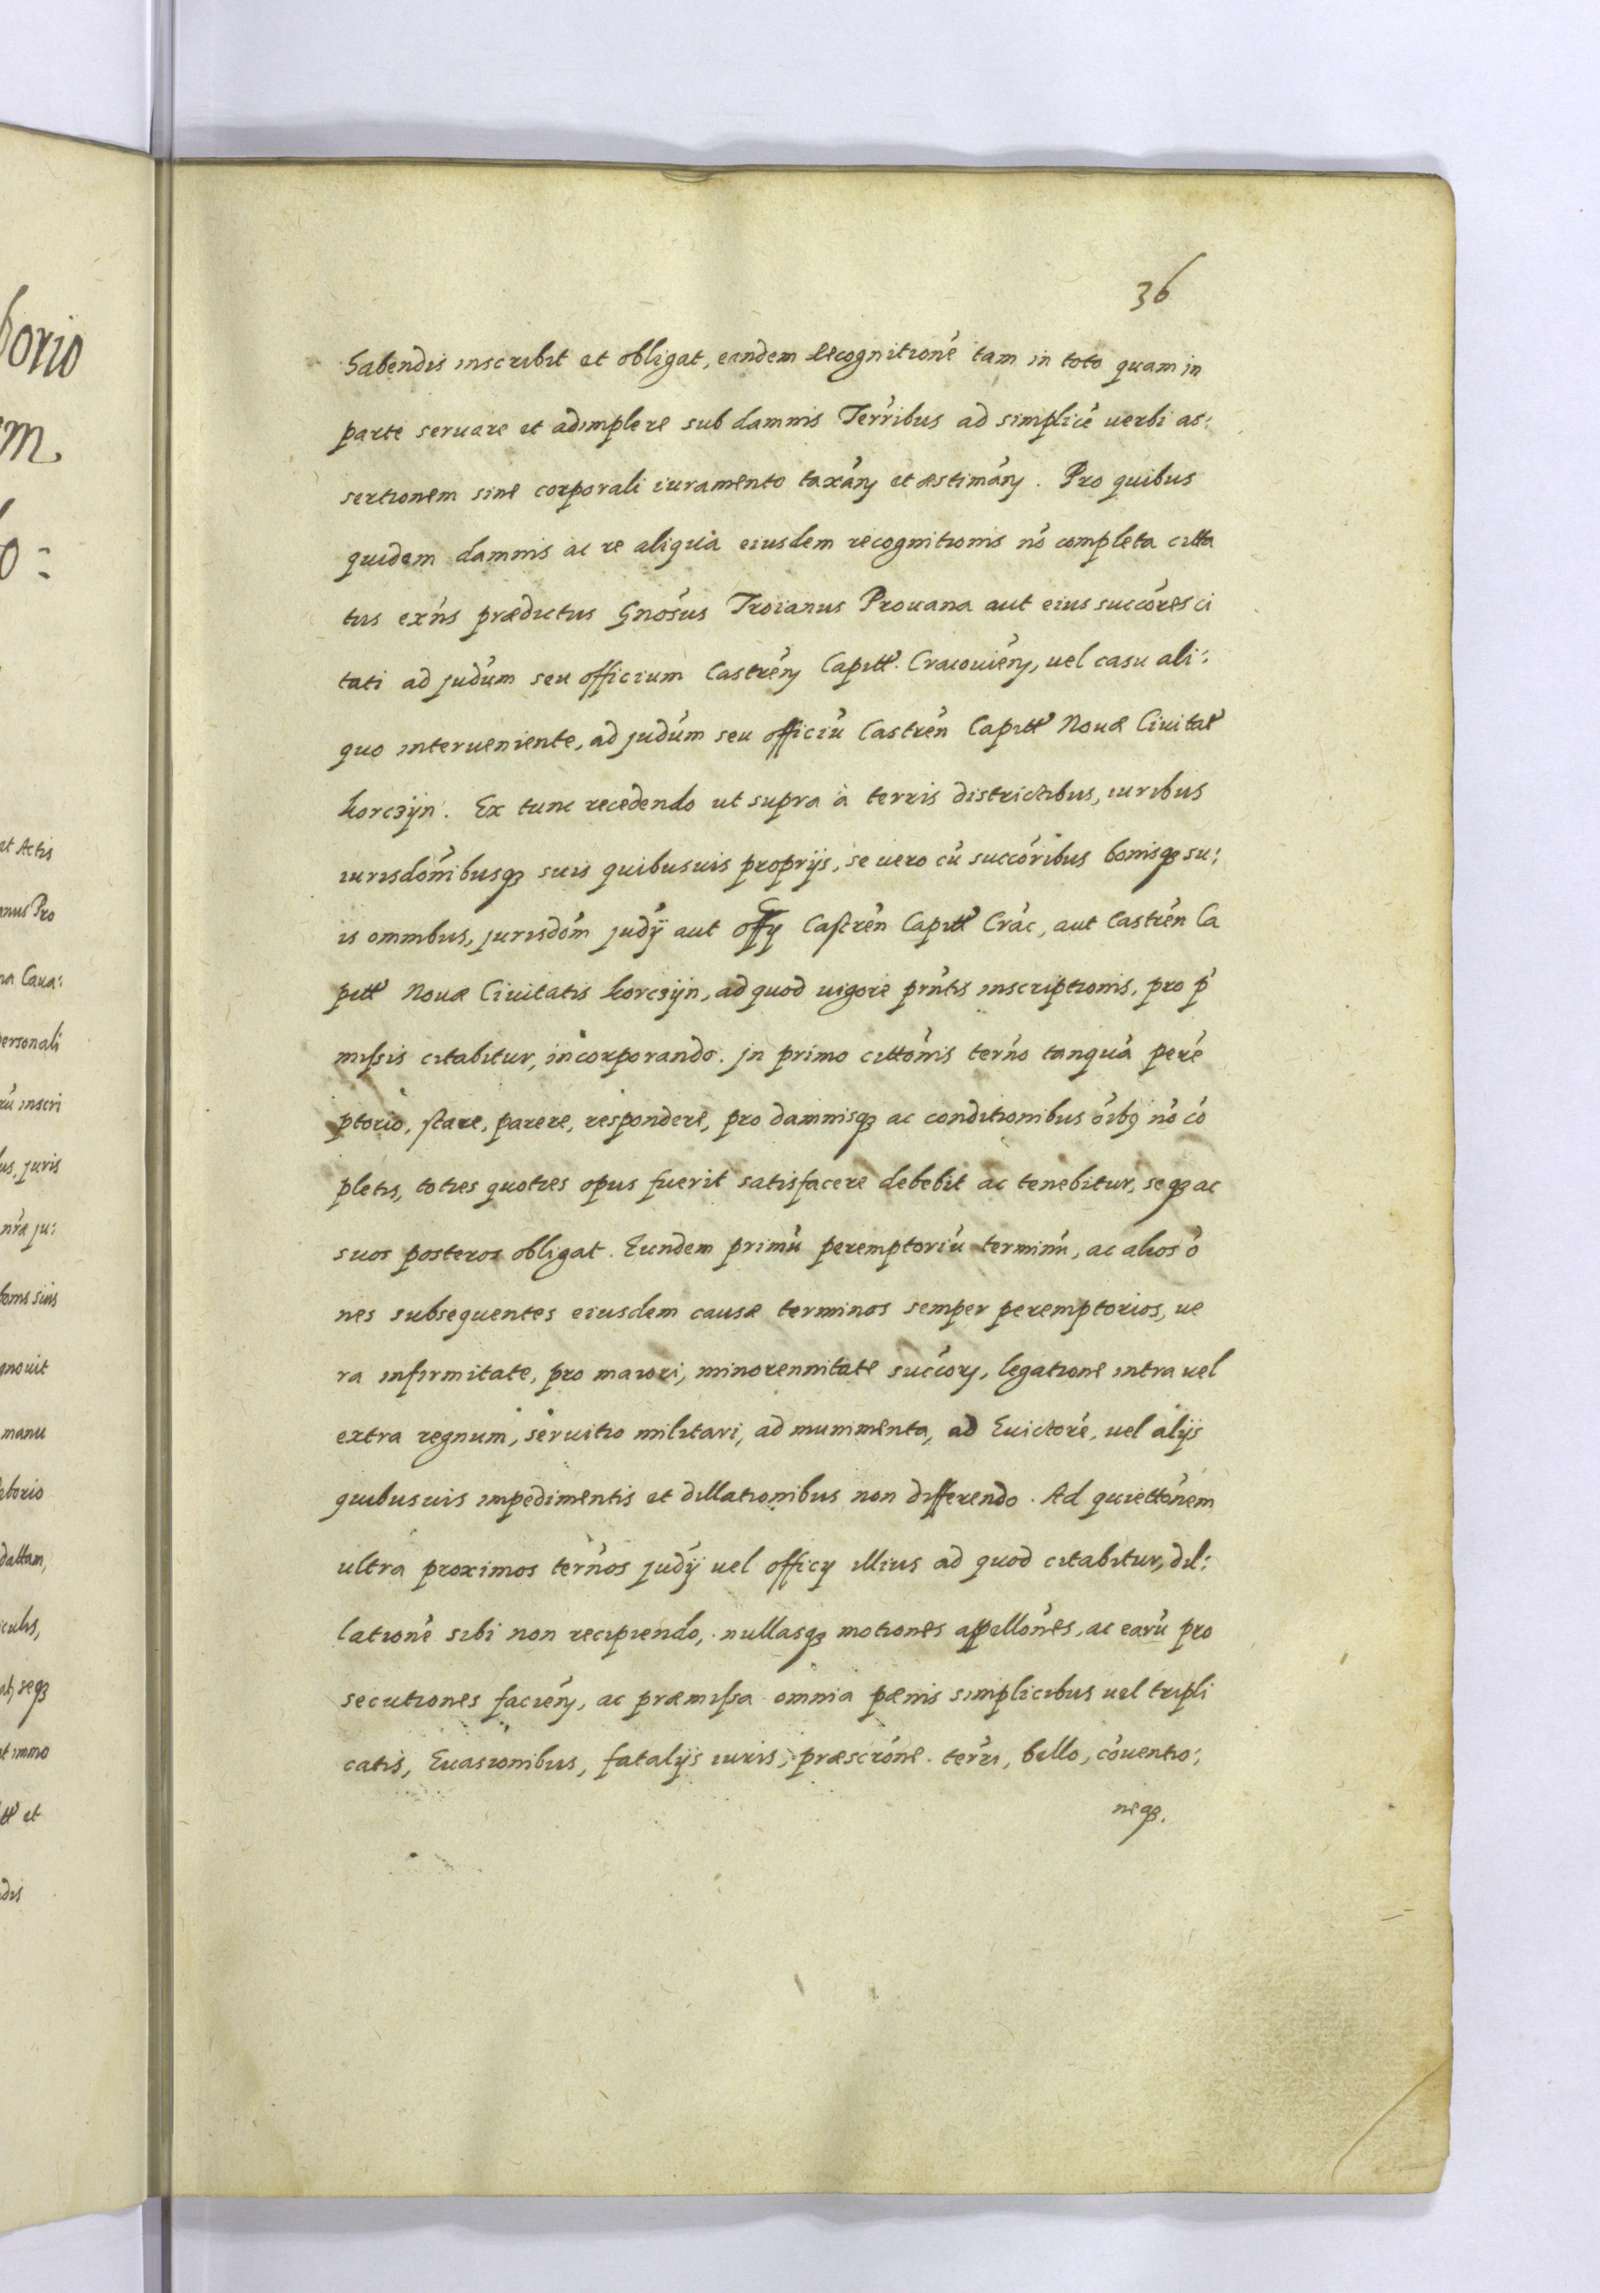 36
habendis inscribit et obligat, eandem recognitionē tam in toto quam in
parte seruare et adimplere sub damnis Terr̄ibus ad simplicē uerbi as:
sertionem sine corporali iuramento taxān et æstimān. Pro quibus
quidem damnis ac re aliquā eiusdem recognitionis nō completa citta
tus exn̄s prædictus Gnōsus Troianus Prouana aut eius succōres ci
tati ad judūm seu officium Castrēn Capitt̄. Cracouiēn, uel casu ali:
quo interueniente, ad judūm seu officiū Castrēn Capitt̄ Nouæ Ciuitat̄
Korczÿn. Ex tunc recedendo ut supra à terris districtibus, iuribus
iurisdōnibusq3 suis quibusuis proprijs, se uero cū succōribus bonisq3 su:
is omnibus, jurisdōm judÿ aut offÿ Castrēn Capitt̄ Crāc, aut Castrēn Ca
pitt̄ Nouæ Ciuitatis Korczÿn, ad quod uigore prn̄tis inscriptionis, pro p̄
missis citabitur, incorporando. Jn primo cittōnis tern̄o tanquā perē
ptorio, stare, parere, respondere, pro damnisq3 ac conditionibus ōib9 nō cō
pletis, toties quoties opus fuerit satisfacere debebit ac tenebitur, seq3 ac
suos posteros obligat. Eundem primū peremptoriū terminū, ac alios ō
nes subsequentes eiusdem causæ terminos semper peremptorios, ue
ra infirmitate, pro maiori, minorennitate succor̄, legatione intra uel
extra regnum, seruitio militari, ad munimenta, ad Euictorē, uel alijs
quibusuis impedimentis et dillationibus non differendo. Ad quiettōnem
ultra proximos tern̄os judÿ uel officÿ illius ad quod citabitur, dil:
lationē sibi non recipiendo, nullasq3 motiones appellōnes, ac earū pro
secutiones faciēn, ac præmissa omnia pænis simplicibus uel tripli
catis, Euasionibus, fatalijs iuris, præscrōne terr̄i, bello, cōuentio:
neq3.
borio
em
o:
et Actis
anus Pro
na Caua:
personali
rū inscri
us, juris
nr̄æ ju:
bonis suis
gnouit
manu
eborio
dattam,
culis,
seq3
et immo
tt̄ et
dis